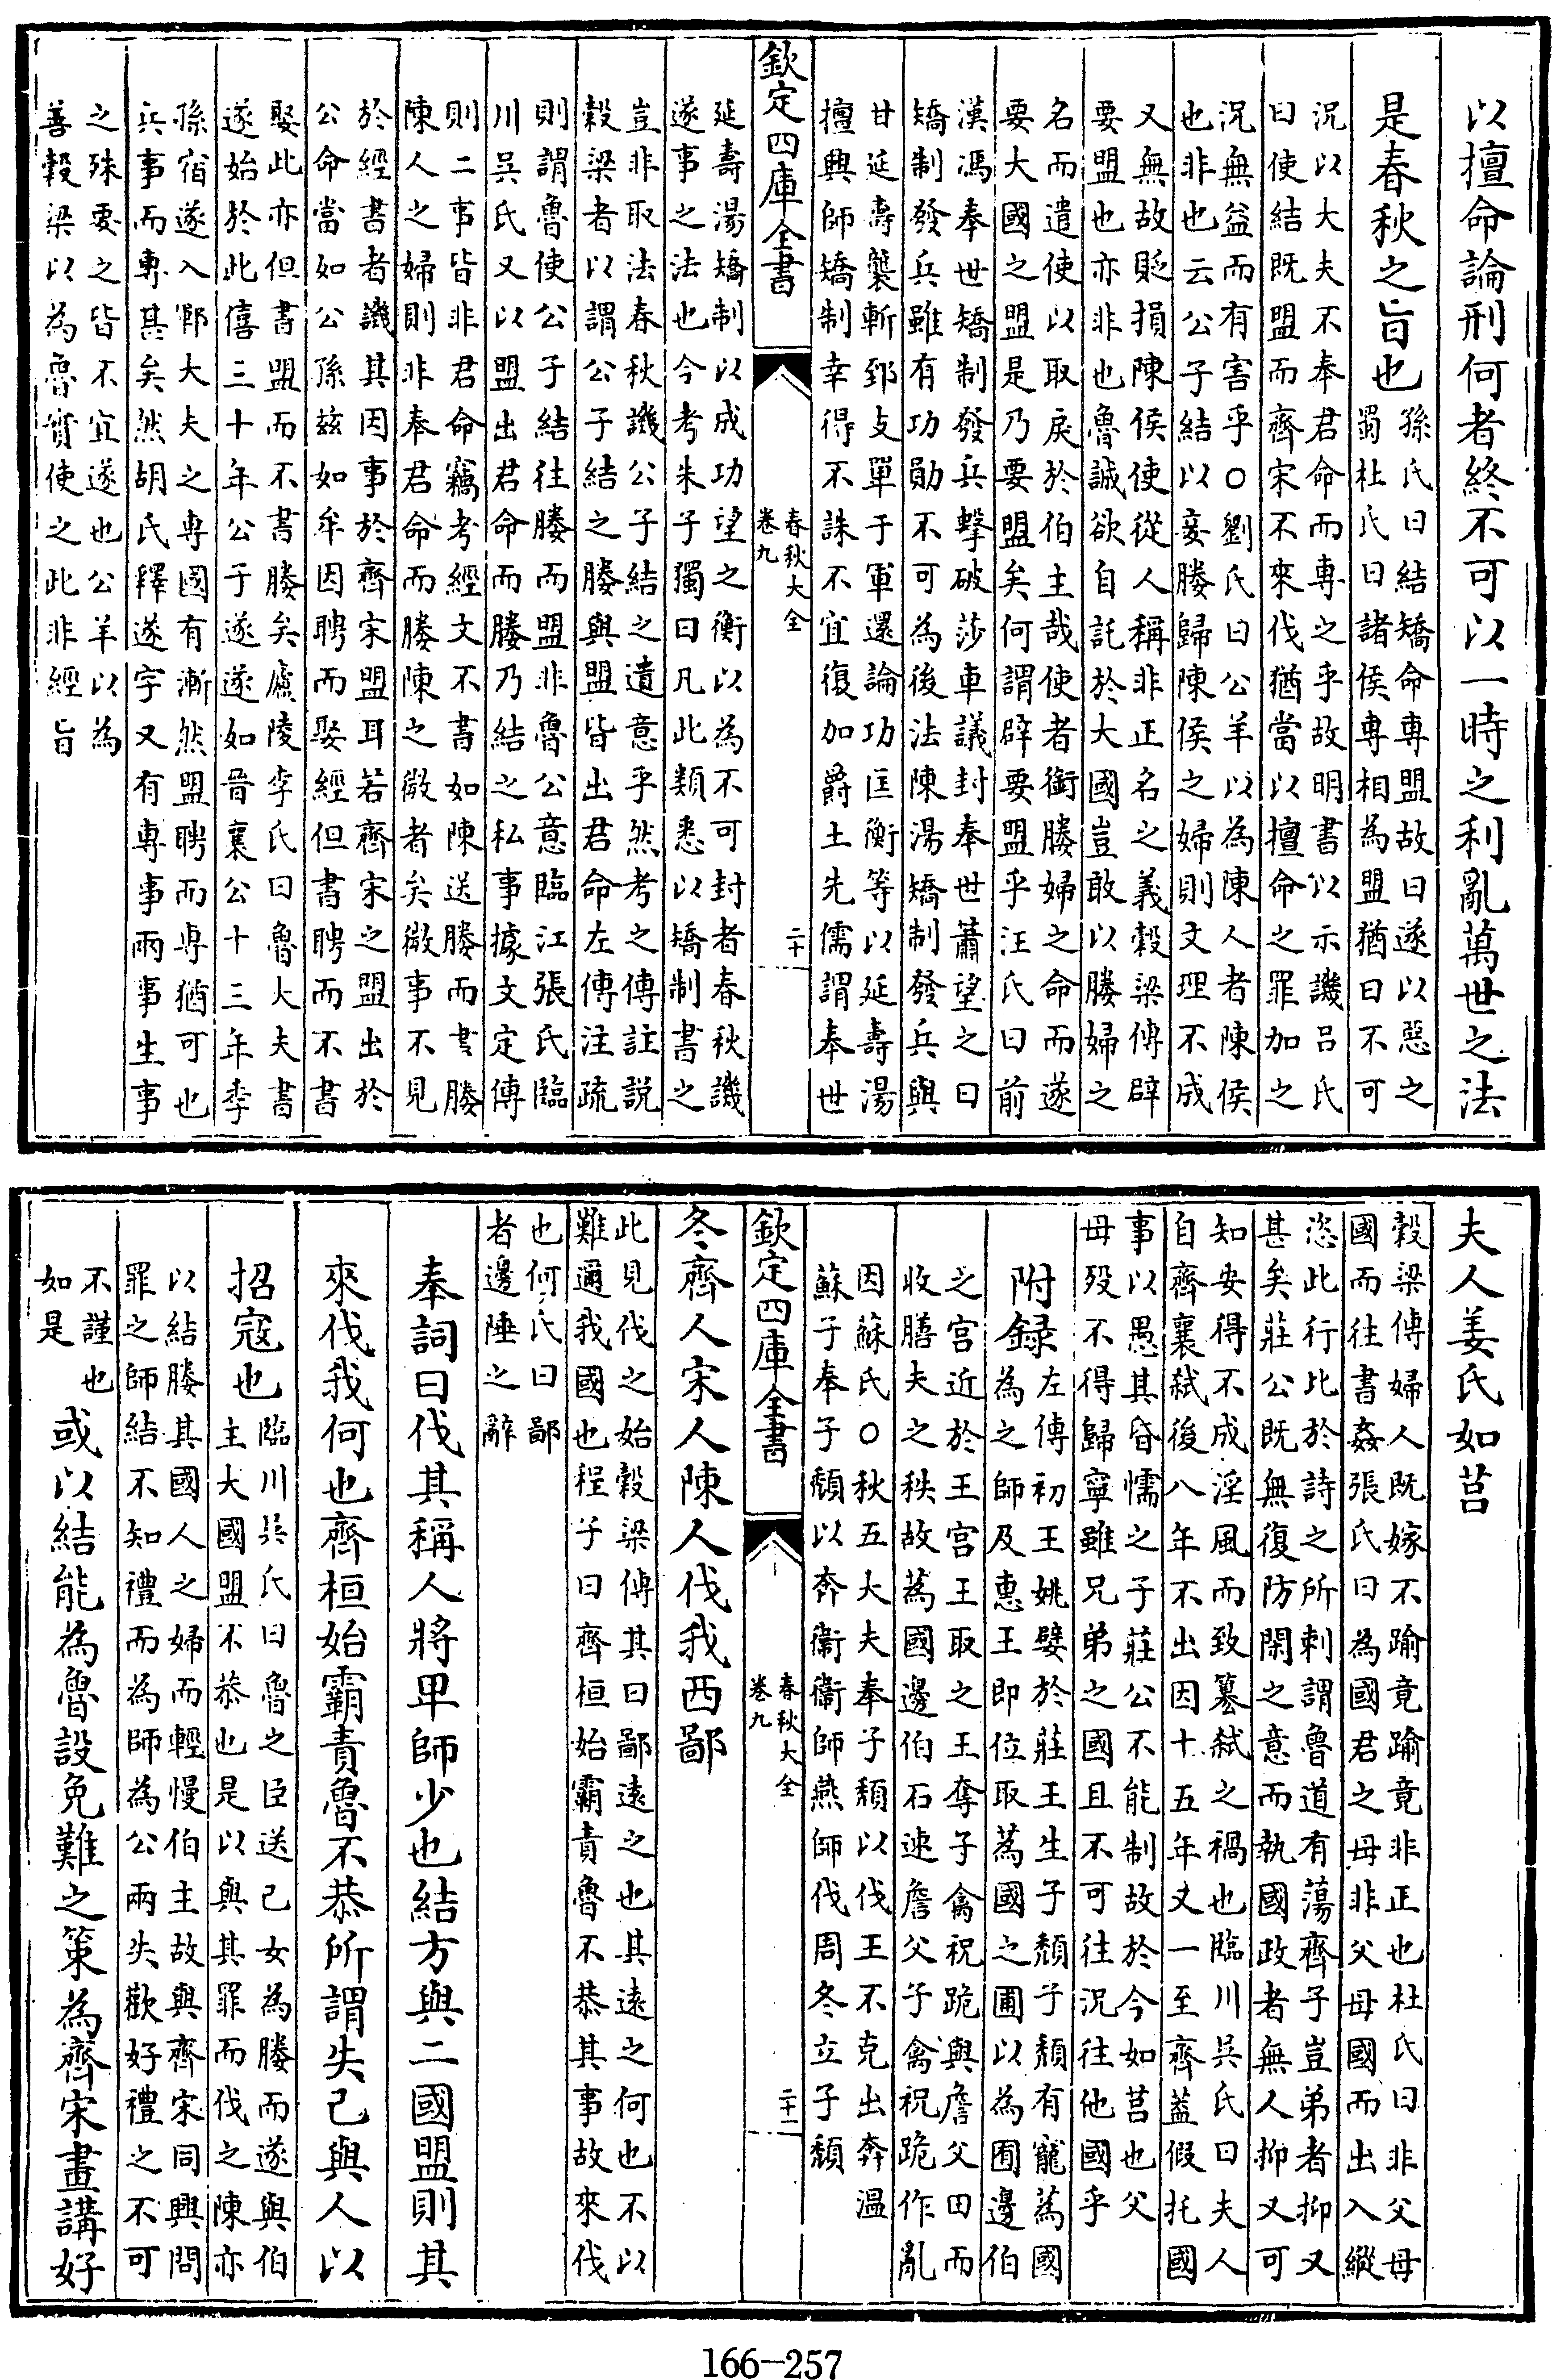 以擅命論刑何者終不可以一時之利亂萬世之法
是春秋之旨也
孫氏曰結矯命專盟故曰遂以惡之
蜀杜氏曰諸侯專相為盟猶曰不可
況以大夫不奉君命而專之乎故明書以示譏呂氏
曰使結既盟而齊宋不來伐猶當以擅命之罪加之
況無益而有害乎○劉氏曰公羊以為陳人者陳侯
也非也云公子結以妾媵歸陳侯之婦則文理不成
又無故貶損陳侯使從人稱非正名之義穀梁傳辟
要盟也亦非也魯誠欲自託於大國豈敢以媵婦之
名而遣使以取戾於伯主哉使者銜媵婦之命而遂
要大國之盟是乃要盟矣何謂辟要盟乎汪氏曰前
漢馮奉世矯制發兵擊破莎車議封奉世蕭望之曰
矯制發兵雖有功勛不可為後法陳湯矯制發兵與
甘延壽襲斬郅支單于軍還論功匡衡等以延壽湯
擅興師矯制幸得不誅不宜復加爵土先儒謂奉世
欽定四庫全書
春秋大全
卷九
二十
延壽湯矯制以成功望之衡以為不可封者春秋譏
遂事之法也今考朱子獨曰凡此類悉以矯制書之
豈非取法春秋譏公子結之遺意乎然考之傳註説
穀梁者以謂公子結之媵與盟皆出君命左傳注疏
則謂魯使公子結往媵而盟非魯公意臨江張氏臨
川吳氏又以盟出君命而媵乃結之私事據文定傳
則二事皆非君命竊考經文不書如陳送媵而書媵
陳人之婦則非奉君命而媵陳之微者矣微事不見
於經書者譏其因事於齊宋盟耳若齊宋之盟出於
公命當如公孫茲如牟因聘而娶經但書聘而不書
娶此亦但書盟而不書媵矣廬陵李氏曰魯大夫書
遂始於此僖三十年公子遂遂如晉襄公十三年季
孫宿遂入鄆大夫之專國有漸然盟聘而専猶可也
兵事而專甚矣然胡氏釋遂字又有專事兩事生事
之殊要之皆不宜遂也公羊以為
善穀梁以為魯實使之此非經旨
夫人姜氏如莒
穀梁傳婦人既嫁不踰竟踰竟非正也杜氏曰非父母
國而往書姦張氏曰為國君之母非父母國而出入縱
恣此行比於詩之所刺謂魯道有蕩齊子豈弟者抑又
甚矣莊公既無復防閑之意而執國政者無人抑又可
知安得不成淫風而致簒弒之禍也臨川吳氏曰夫人
自齊襄弒後八年不出因十五年又一至齊蓋假托國
事以愚其昏懦之子莊公不能制故於今如莒也父
母歿不得歸寧雖兄弟之國且不可往況往他國乎
附録
左傳初王姚嬖於莊王生子頽子頽有寵蒍國
為之師及惠王即位取蒍國之圃以為囿邊伯
之宫近於王宫王取之王奪子禽祝跪與詹父田而
收膳夫之秩故蒍國邊伯石速詹父子禽祝跪作亂
因蘇氏○秋五大夫奉子頽以伐王不克出奔温
蘇子奉子頽以奔衞衞師燕師伐周冬立子頽
欽定四庫全書
春秋大全
卷九
二十一
冬齊人宋人陳人伐我西鄙
此見伐之始穀梁傳其曰鄙遠之也其遠之何也不以
難邇我國也程子曰齊桓始霸責魯不恭其事故來伐
也何氏曰鄙
者邊陲之辭
奉詞曰伐其稱人將卑師少也結方與二國盟則其
來伐我何也齊桓始霸責魯不恭所謂失己與人以
招寇也
臨川吳氏曰魯之臣送己女為媵而遂與伯
主大國盟不恭也是以與其罪而伐之陳亦
以結媵其國人之婦而輕慢伯主故與齊宋同興問
罪之師結不知禮而為師為公兩失歡好禮之不可
不謹也
如是
或以結能為魯設免難之策為齊宋畫講好
166-257